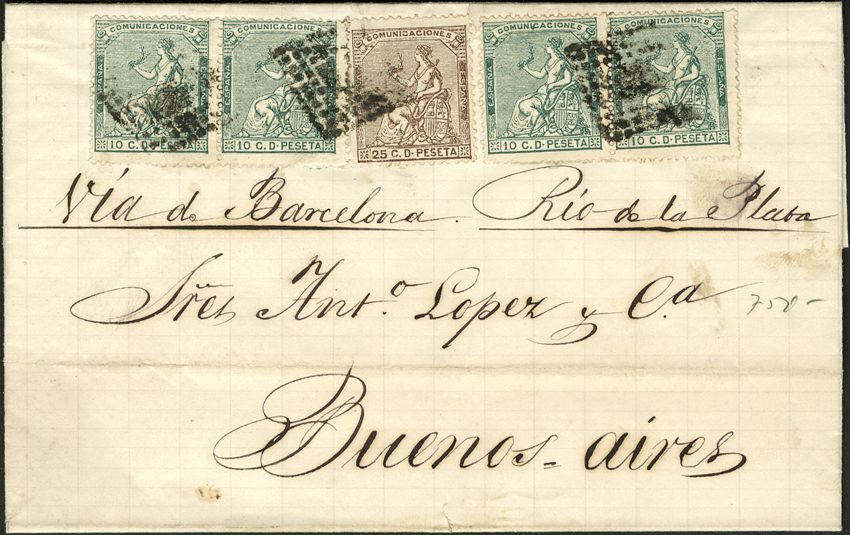 COMUNICACIONES COMUNICACIONES COMUNICACIONES COMUNICACIONES COMUNICACIONES
ESPAÑA ESPAÑA ESPAÑA ESPAÑA ESPAÑA
10 C. D. PESETA 10 C. D. PESETA 25 C. D. PESETA 10 C. D. PESETA 10 C. D. PESETA
Vía de Barcelona. Río de la Plata
Sres Anto Lopez y Ca
750-
Buenos-aires